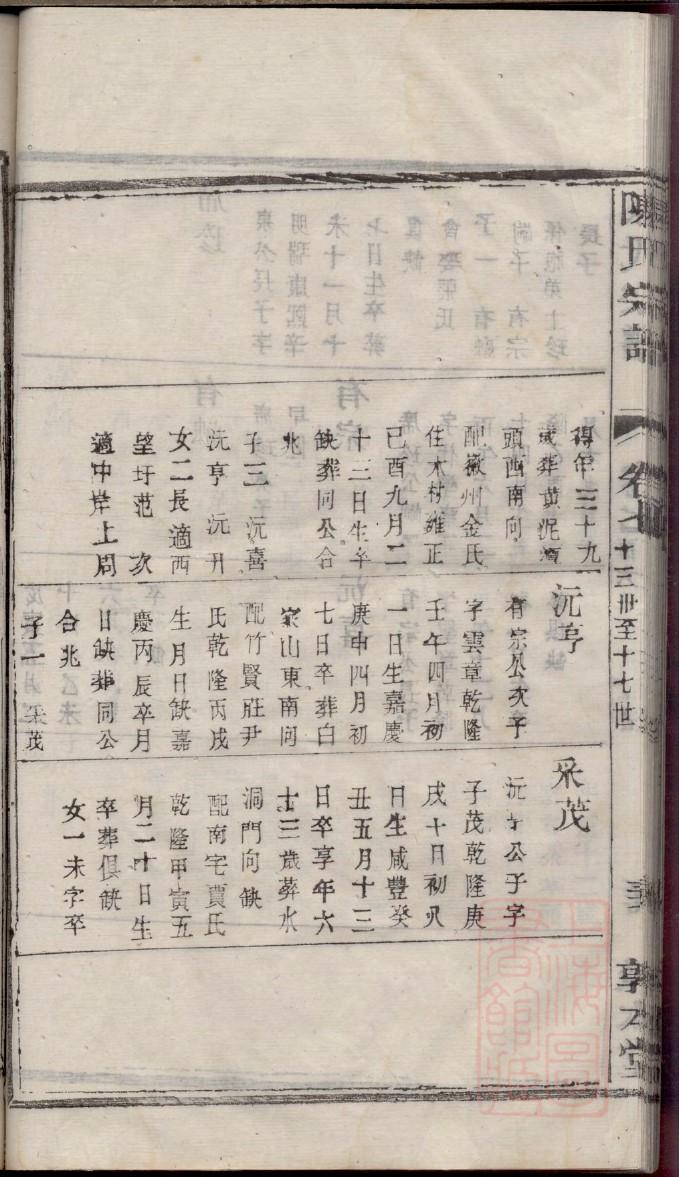 陳氏宗譜
卷七
十三世至十七世
敦本堂
得年三十九
歲葬黃泥潭
頭西南向
配徽州金氏
住木村雍正
己酉九月二
十三日生卒
缺葬同公合
兆
子三 沅喜
沅亨 沅升
女二長適西
望圩范 次
適中岸上周
沅亨
有宗公次子
字雲章乾隆
壬午四月初
一日生嘉慶
庚申四月初
七日卒葬白
家山東南向
配竹賢莊尹
氏乾隆丙戌
生月日缺嘉
慶丙辰卒月
日缺葬同公
合兆
子一 采茂
采茂
沅亨公子字
子茂乾隆庚
戌十日初八
日生咸豐癸
丑五月十三
日卒享年六
十三歲葬水
洞門向缺
配南宅賈氏
乾隆甲寅五
月二十日生
卒葬俱缺
女一未字卒